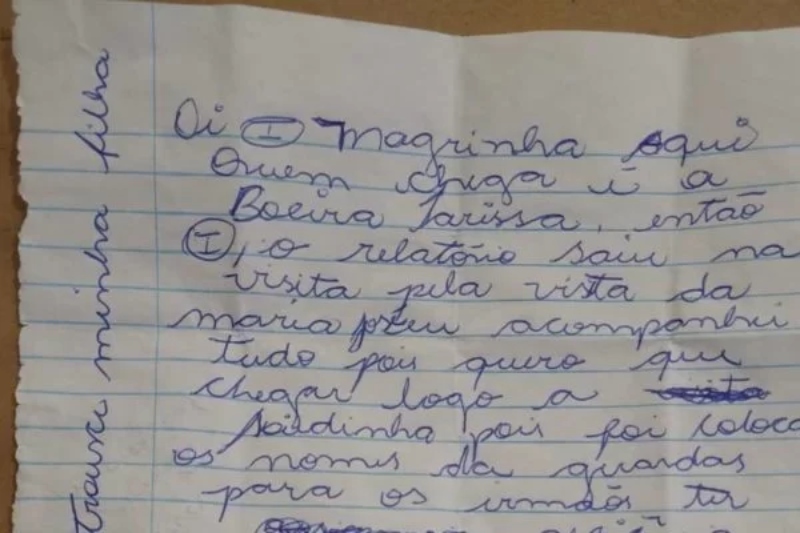 Oi I Magrinha Aqui
Quem chega é a
Boeira Larissa, então
I, o relatório saiu na
visita pela vista da
maria acompanhei
tudo pois quero que
chegar logo a
saidinha pois foi coloca
os nomes da guardas
para os irmãos ter
Trouxe minha filha